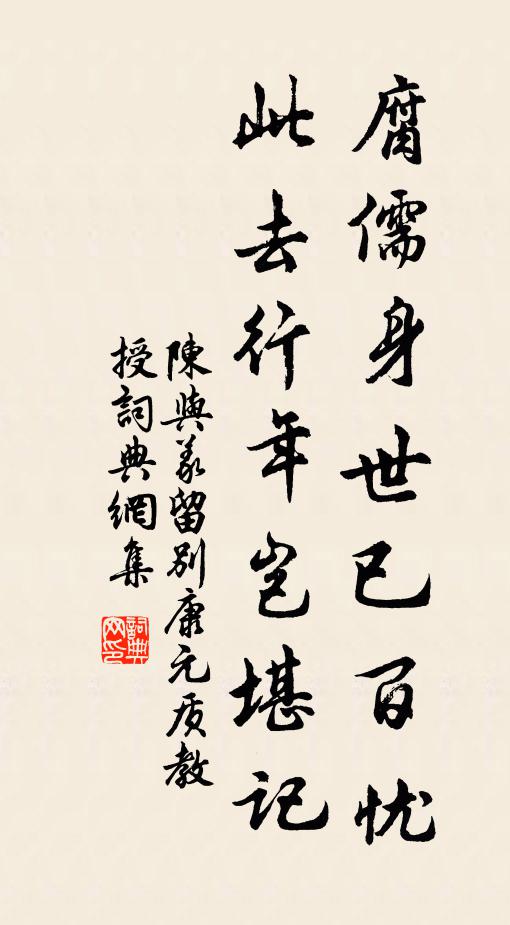 腐儒身世已百忧
此去行年岂堪记
陳與義留别康元质教
授詞典網集
詞典网印